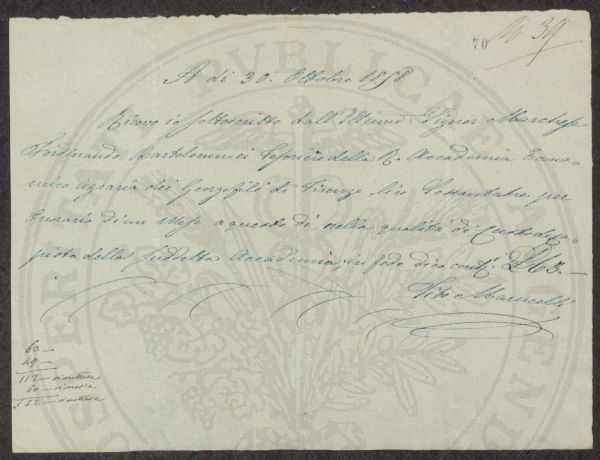 70
N 39
A dì 30. Ottobre 1858
Ricevo io sottoscritto dall' Illmo: Signor Marchese
Ferdinando Bartolommei Tesoriere della R. Accademia Econo-
mico Agraria dei Georgofili di Firenze, lire Sessantatre per
Onorario di un Mese a questo dì nella qualità di Custode, Co-
pista della suddetta Accademia, in fede dico cont: £63.—
Tito Marucelli
63 —
49 —
112 —
60 — rimessa
£ 52 —
PVBLICAE